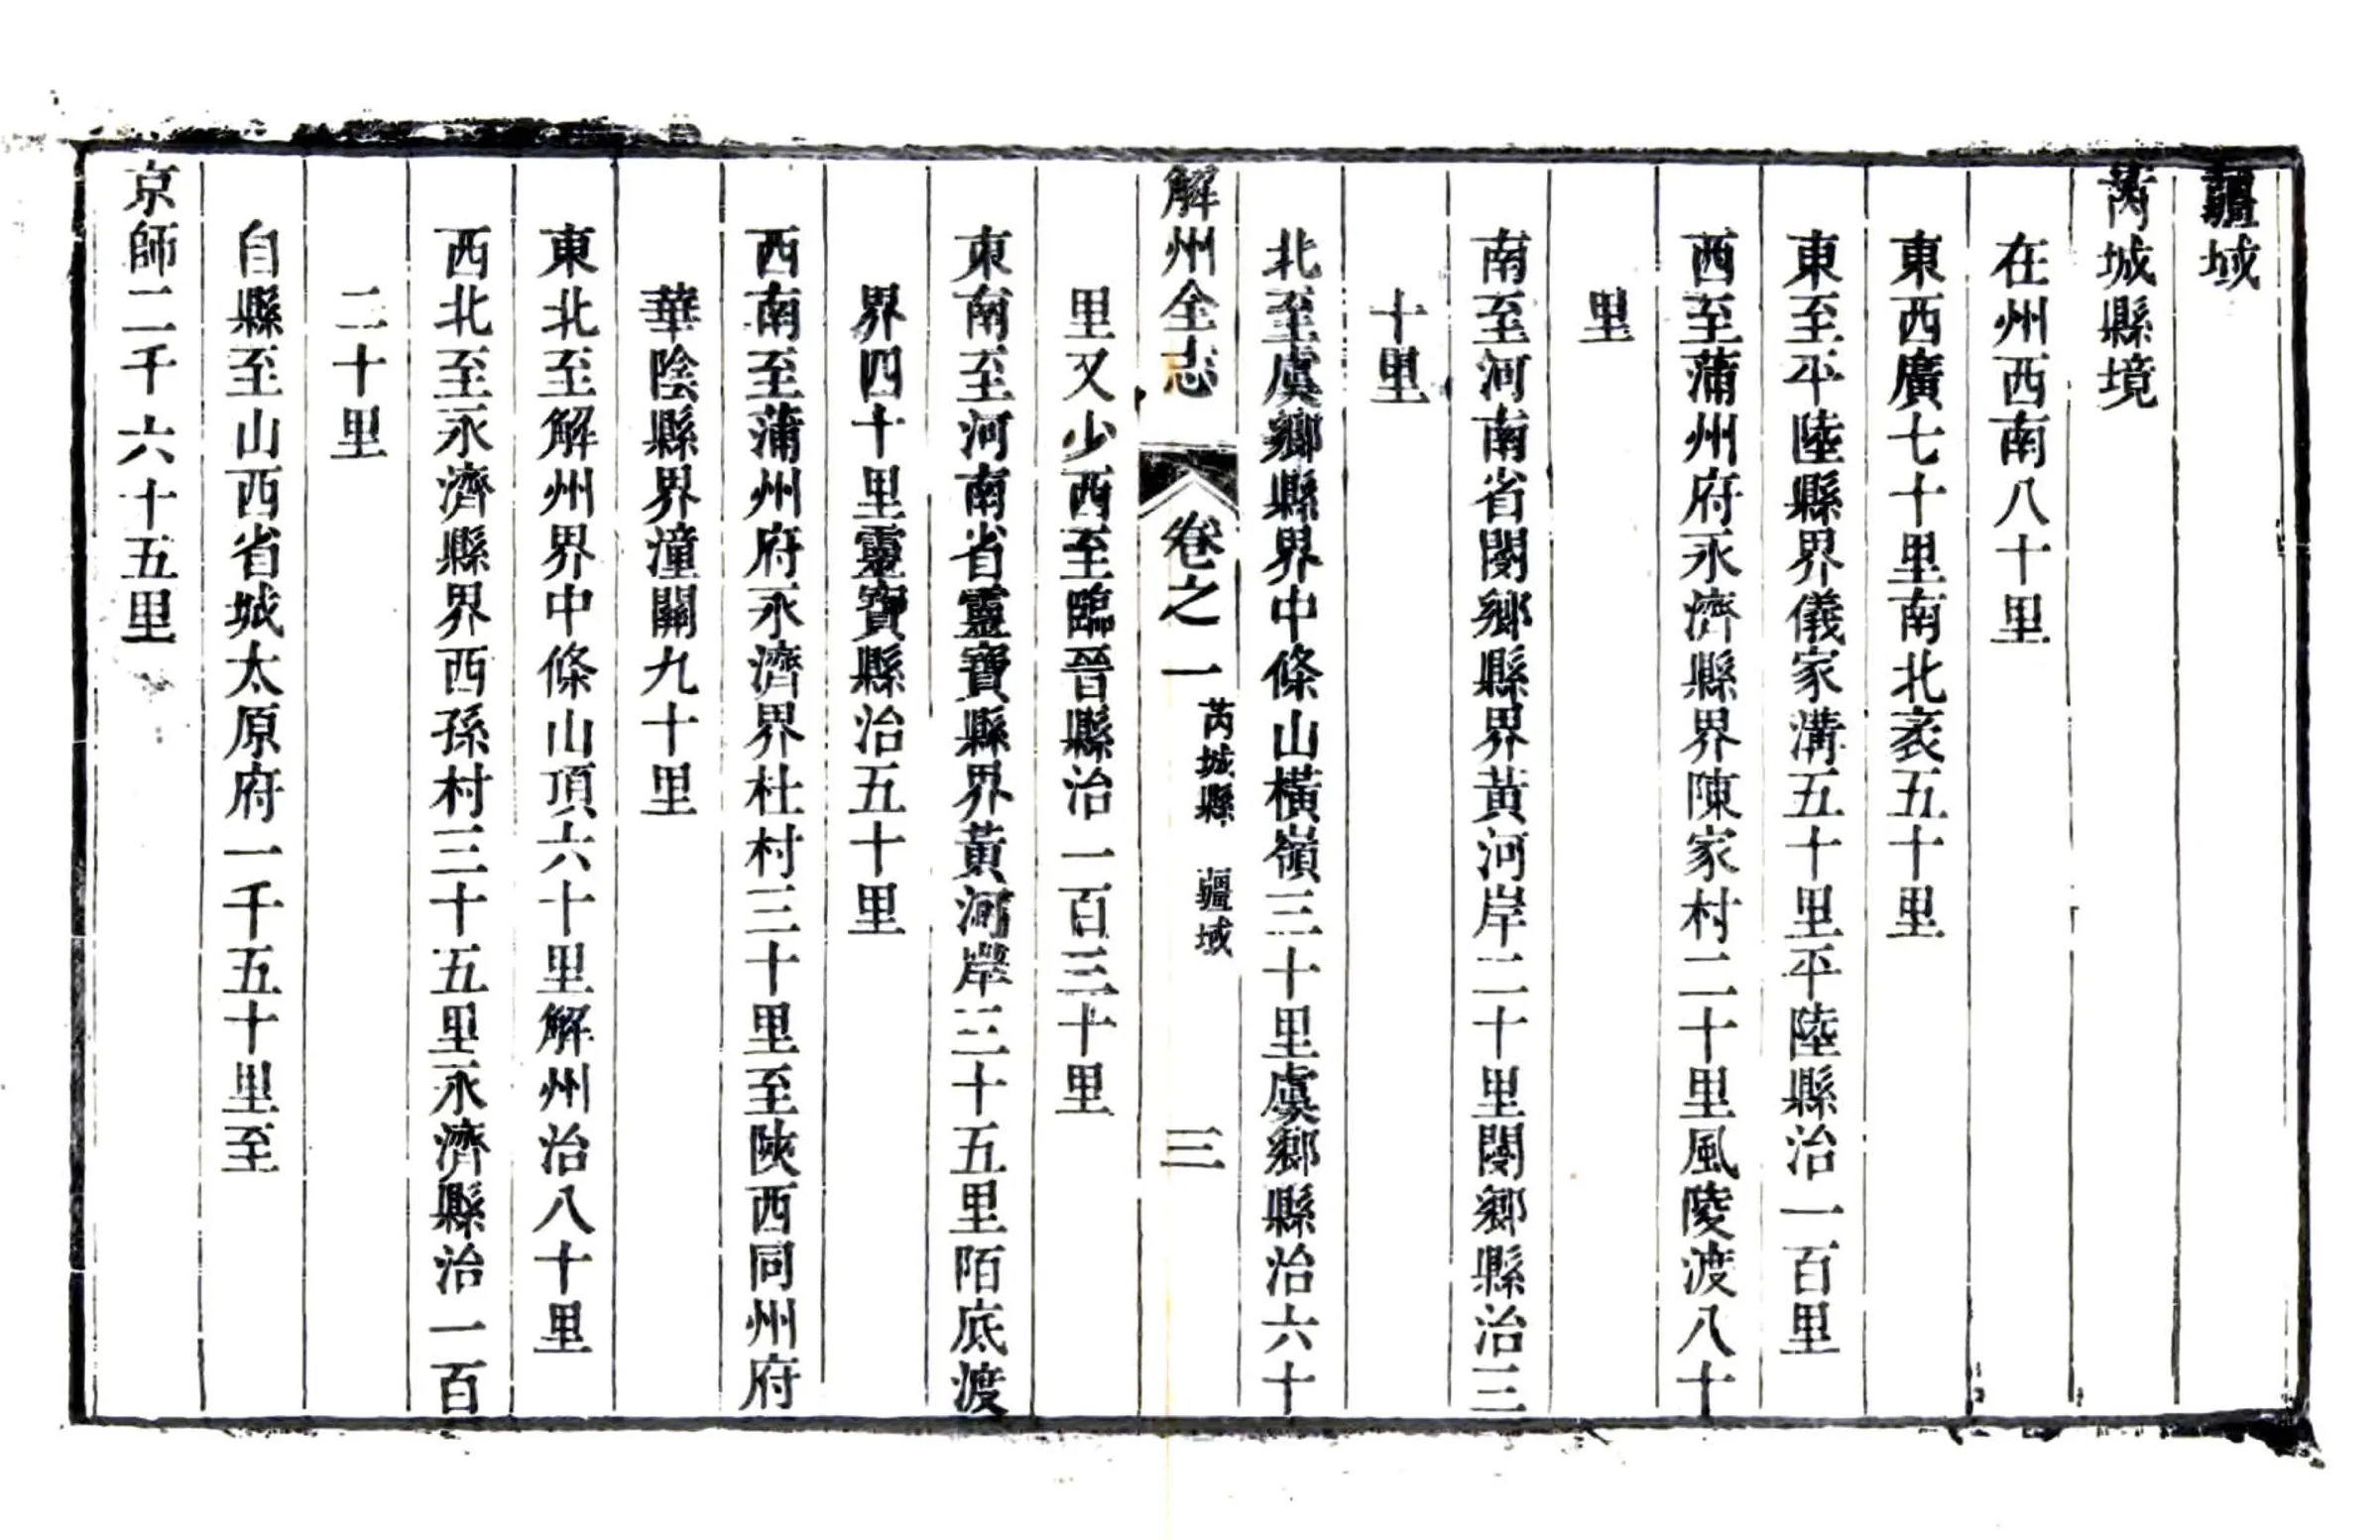 疆域
芮城縣境
在州西南八十里
東西廣七十里南北袤五十里
東至平陸縣界儀家溝五十里平陸縣治一百里
西至蒲州府永濟縣界陳家村二十里風陵渡八十
里
南至河南省閿鄉縣界黃河岸二十里閿鄉縣治三
十里
北至虞鄉縣界中條山橫嶺三十里虞鄉縣治六十
解州全志 卷之一 芮城縣 疆域 三
里又少西至臨晉縣治一百三十里
東南至河南省靈寶縣界黃河岸三十五里陌底渡
界四十里靈寶縣治五十里
西南至蒲州府永濟界杜村三十里至陝西同州府
華陰縣界潼關九十里
東北至解州界中條山頂六十里解州治八十里
西北至永濟縣界西孫村三十五里永濟縣治一百
二十里
自縣至山西省城太原府一千五十里至
京師二千六十五里